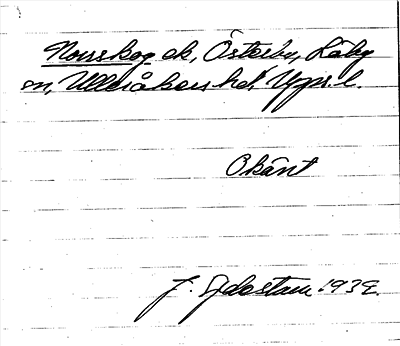 Norrskog ek, Österby, Läby
sn, Ulleråkers hd, Upps. l.
Okänt
J. Sjöstam 1939.